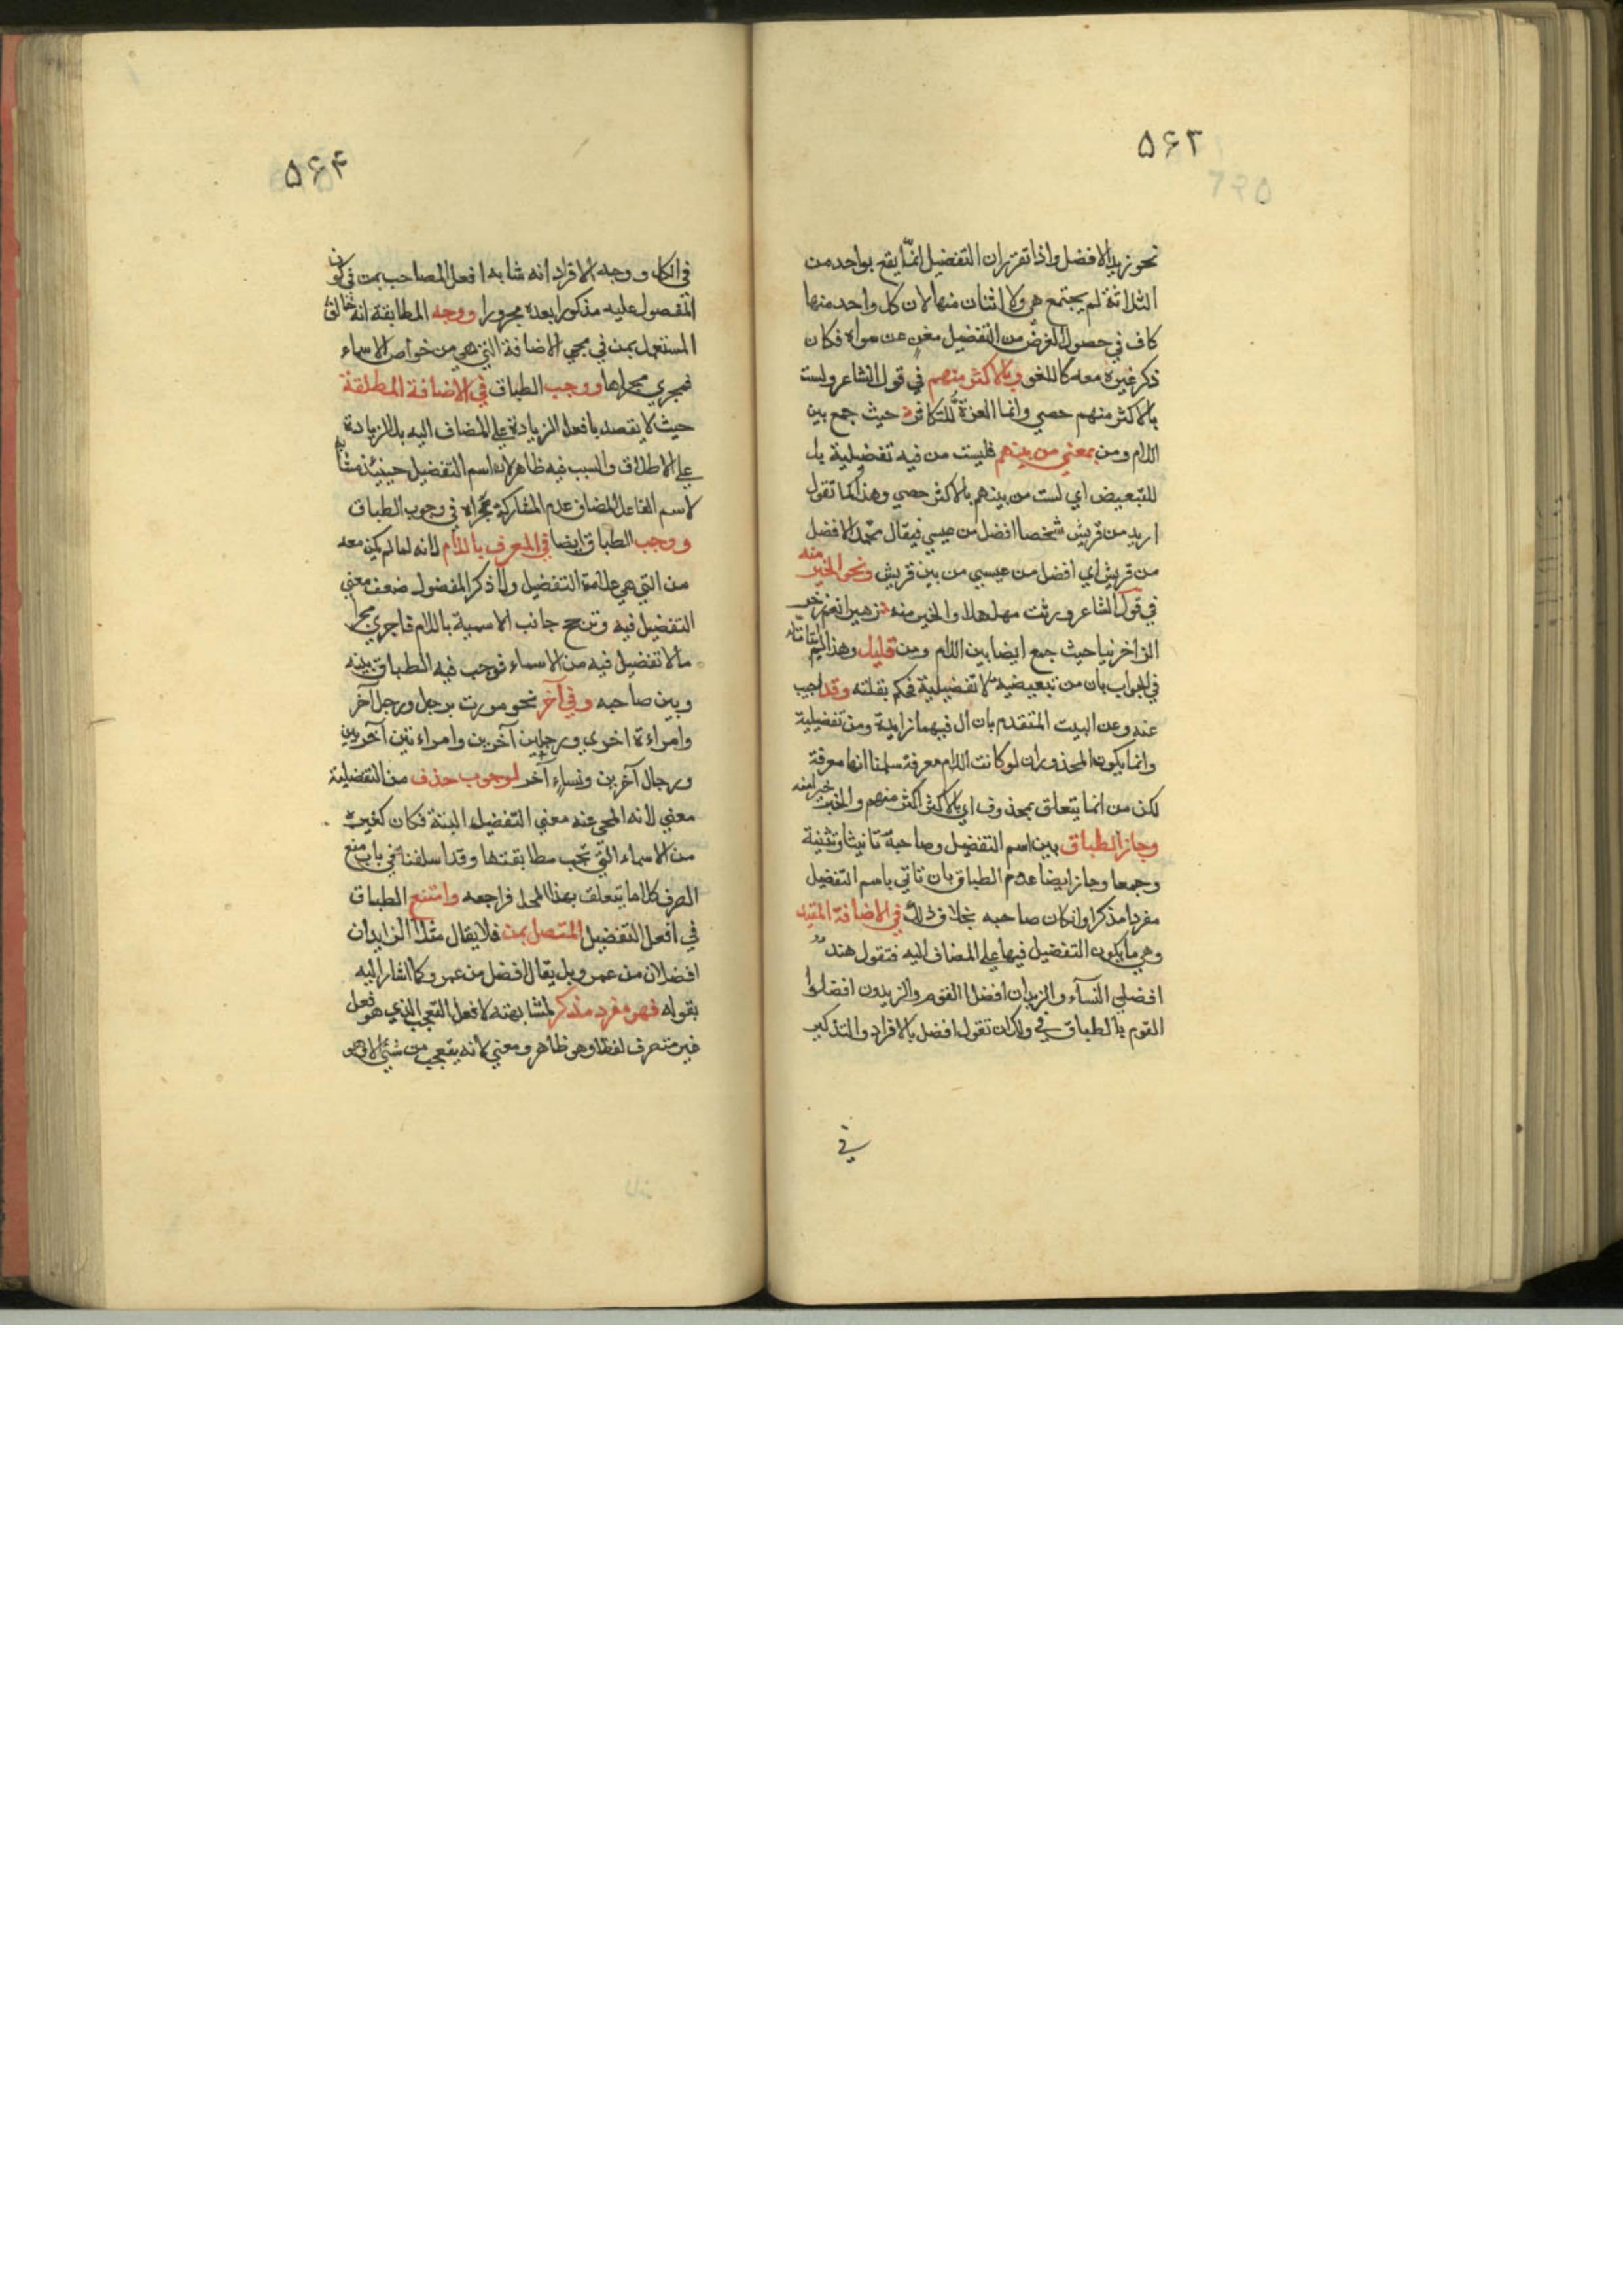 ٥٦٣
نحو زيد الافضل واذا تقرر ان التفضيل انما يقع بواحد من
الثلاثة لم يجتمع هي ولا اثنان منها لان كل واحد منها
كاف في حصول الغرض من التفضيل مغن عن سواه فكان
ذكر غيره معه كاللغو وبالاكثر منهم في قول الشاعر ولست
بالاكثر منهم حصي وانما العزة للكاثر حيث جمع بين
اللام ومن بمعني من بينهم فليست من فيه تفضيلية بل
للتبعيض اي لست من بينهم بالاكثر حصي وهذا كما تقول
اريد من قريش شخصا افضل من عيسي فيقال محمد الافضل
من قريش اي افضل من عيسي من بين قريش ونحو الخير منه
في قول الشاعر ورثت مهلهلا والخير منه زهيرا نعم ذخر
الذاخرينا حيث جمع ايضا بين اللام ومن قليل وهذا
في الجواب بان من تبعيضية لا تفضيلية فحكم بقلته وقد اجيب
عنه وعن البيت المتقدم بان ال فيهما زايدة ومن تفضيلية
وانما يكون المحذور ان لو كانت اللام معرفة سلمنا انها معرفة
لكن من انما يتعلق بمحذوف اي بالاكثر اكثر منهم والخير خيرا منه
وجاز الطباق بين اسم التفضيل وصاحبه تانيثا وتثنية
وجمعا وجاز ايضا عدم الطباق بان تاتي باسم التفضيل
مفردا مذكرا وان كان صاحبه بخلاف ذلك في الاضافة المقيدة
وهي ما يكون التفضيل فيها علي المضاف اليه فتقول هند
افضلي النسآء والزيدان افضلا القوم والزيدون افضلوا
القوم بالطباق في ولك ان تقول افضل بالافراد والتذكير
في
٥٦۴
في الكل ووجه الافراد انه شابه افعل المصاحب بمن في كون
المفصول عليه مذكورا بعده مجرورا ووجه المطابقة انه خالف
المستعمل بمن في مجي الاضافة التي هي من خواص الاسماء
فمجري مجراها ووجب الطباق في الاضافة المطلقة
حيث لا يقصد بافعل الزيادة علي المضاف اليه بل الزيادة
علي الاطلاق والسبب فيه ظاهر لان اسم التفضيل حينيذ مشابه
لاسم الفاعل المضاف عدم المشاركة مجراه في وجوب الطباق
ووجب الطباق ايضا في المعرف باللام لانه لما لم يكن معه
من التي هي علامة التفضيل ولا ذكر المفضول ضعف معني
التفضيل فيه وترجح جانب الاسمية باللام فاجري مجرا
مالا تفضيل فيه من الاسماء فوجب فيه الطباق بينه
وبين صاحبه وفي آخر نحو مررت برجل ورجل آخر
وامراءة اخري ورجلين آخرين وامراءتين آخريين
ورجال آخرين ونساء آخر لوجوب حذف من التفضلية
معني لانه المحي عنه معني التفضيل البتة فكان كغيره
من الاسماء التي تجب مطابقتها وقد اسلفنا في باب منع
الصرف كلاما يتعلق بهذا المحل فراجعه وامتنع الطباق
في افعل التفضيل المتصل بمن فلا يقال مثلا الزايدان
افضلان من عمرو بل يقال افضل من عمرو كما اشار اليه
بقوله فهو مفرد مذكر لمشابهته لافعل التعجب الذي هو فعل
غير متصرف لفظا وهو ظاهر ومعني لانه يتعجب من شئ الا وهو